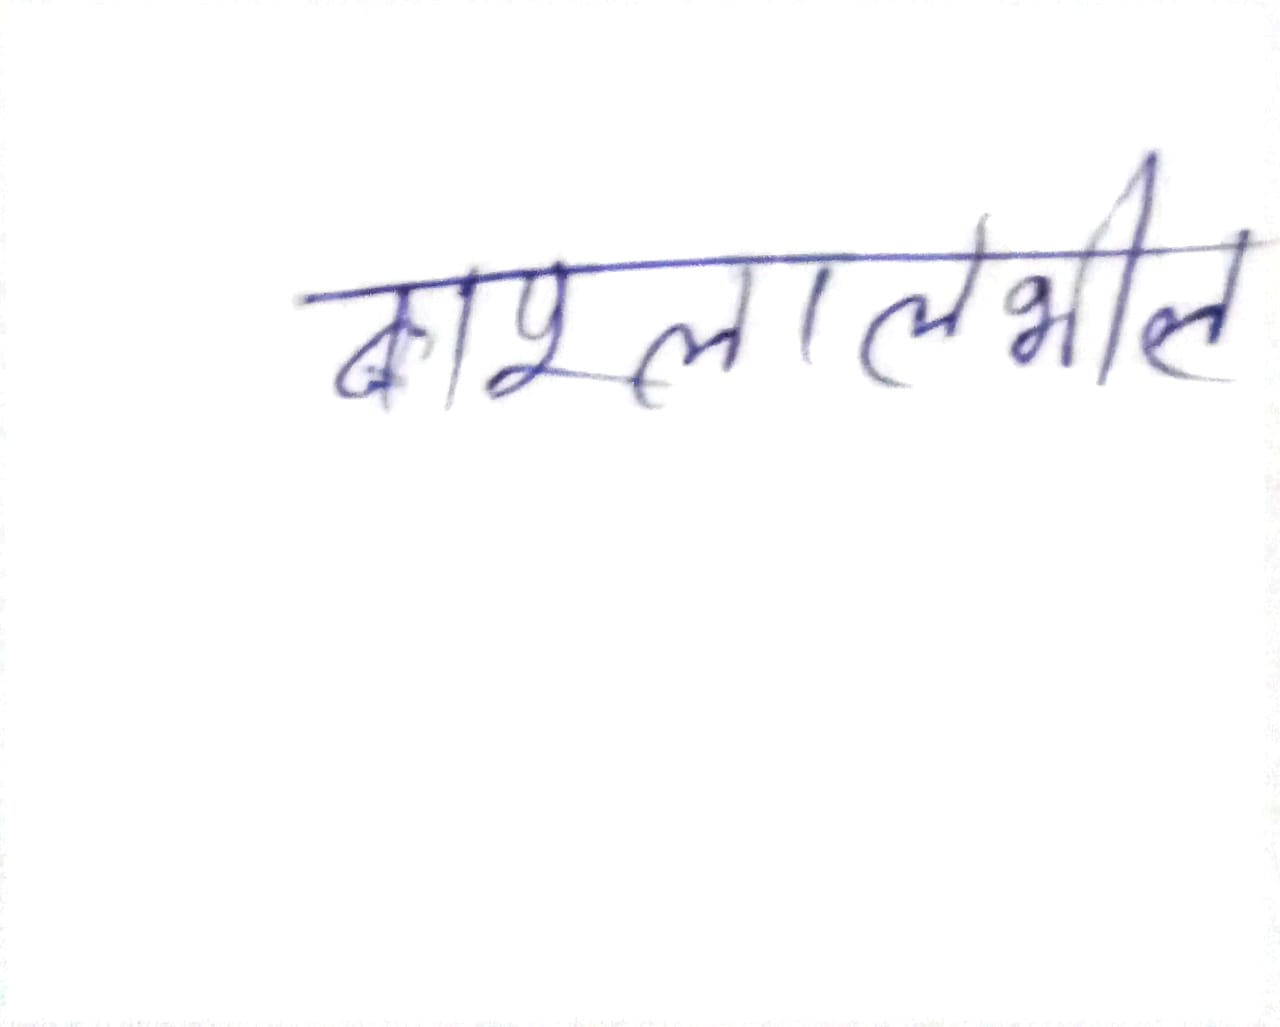 बापुलालभील